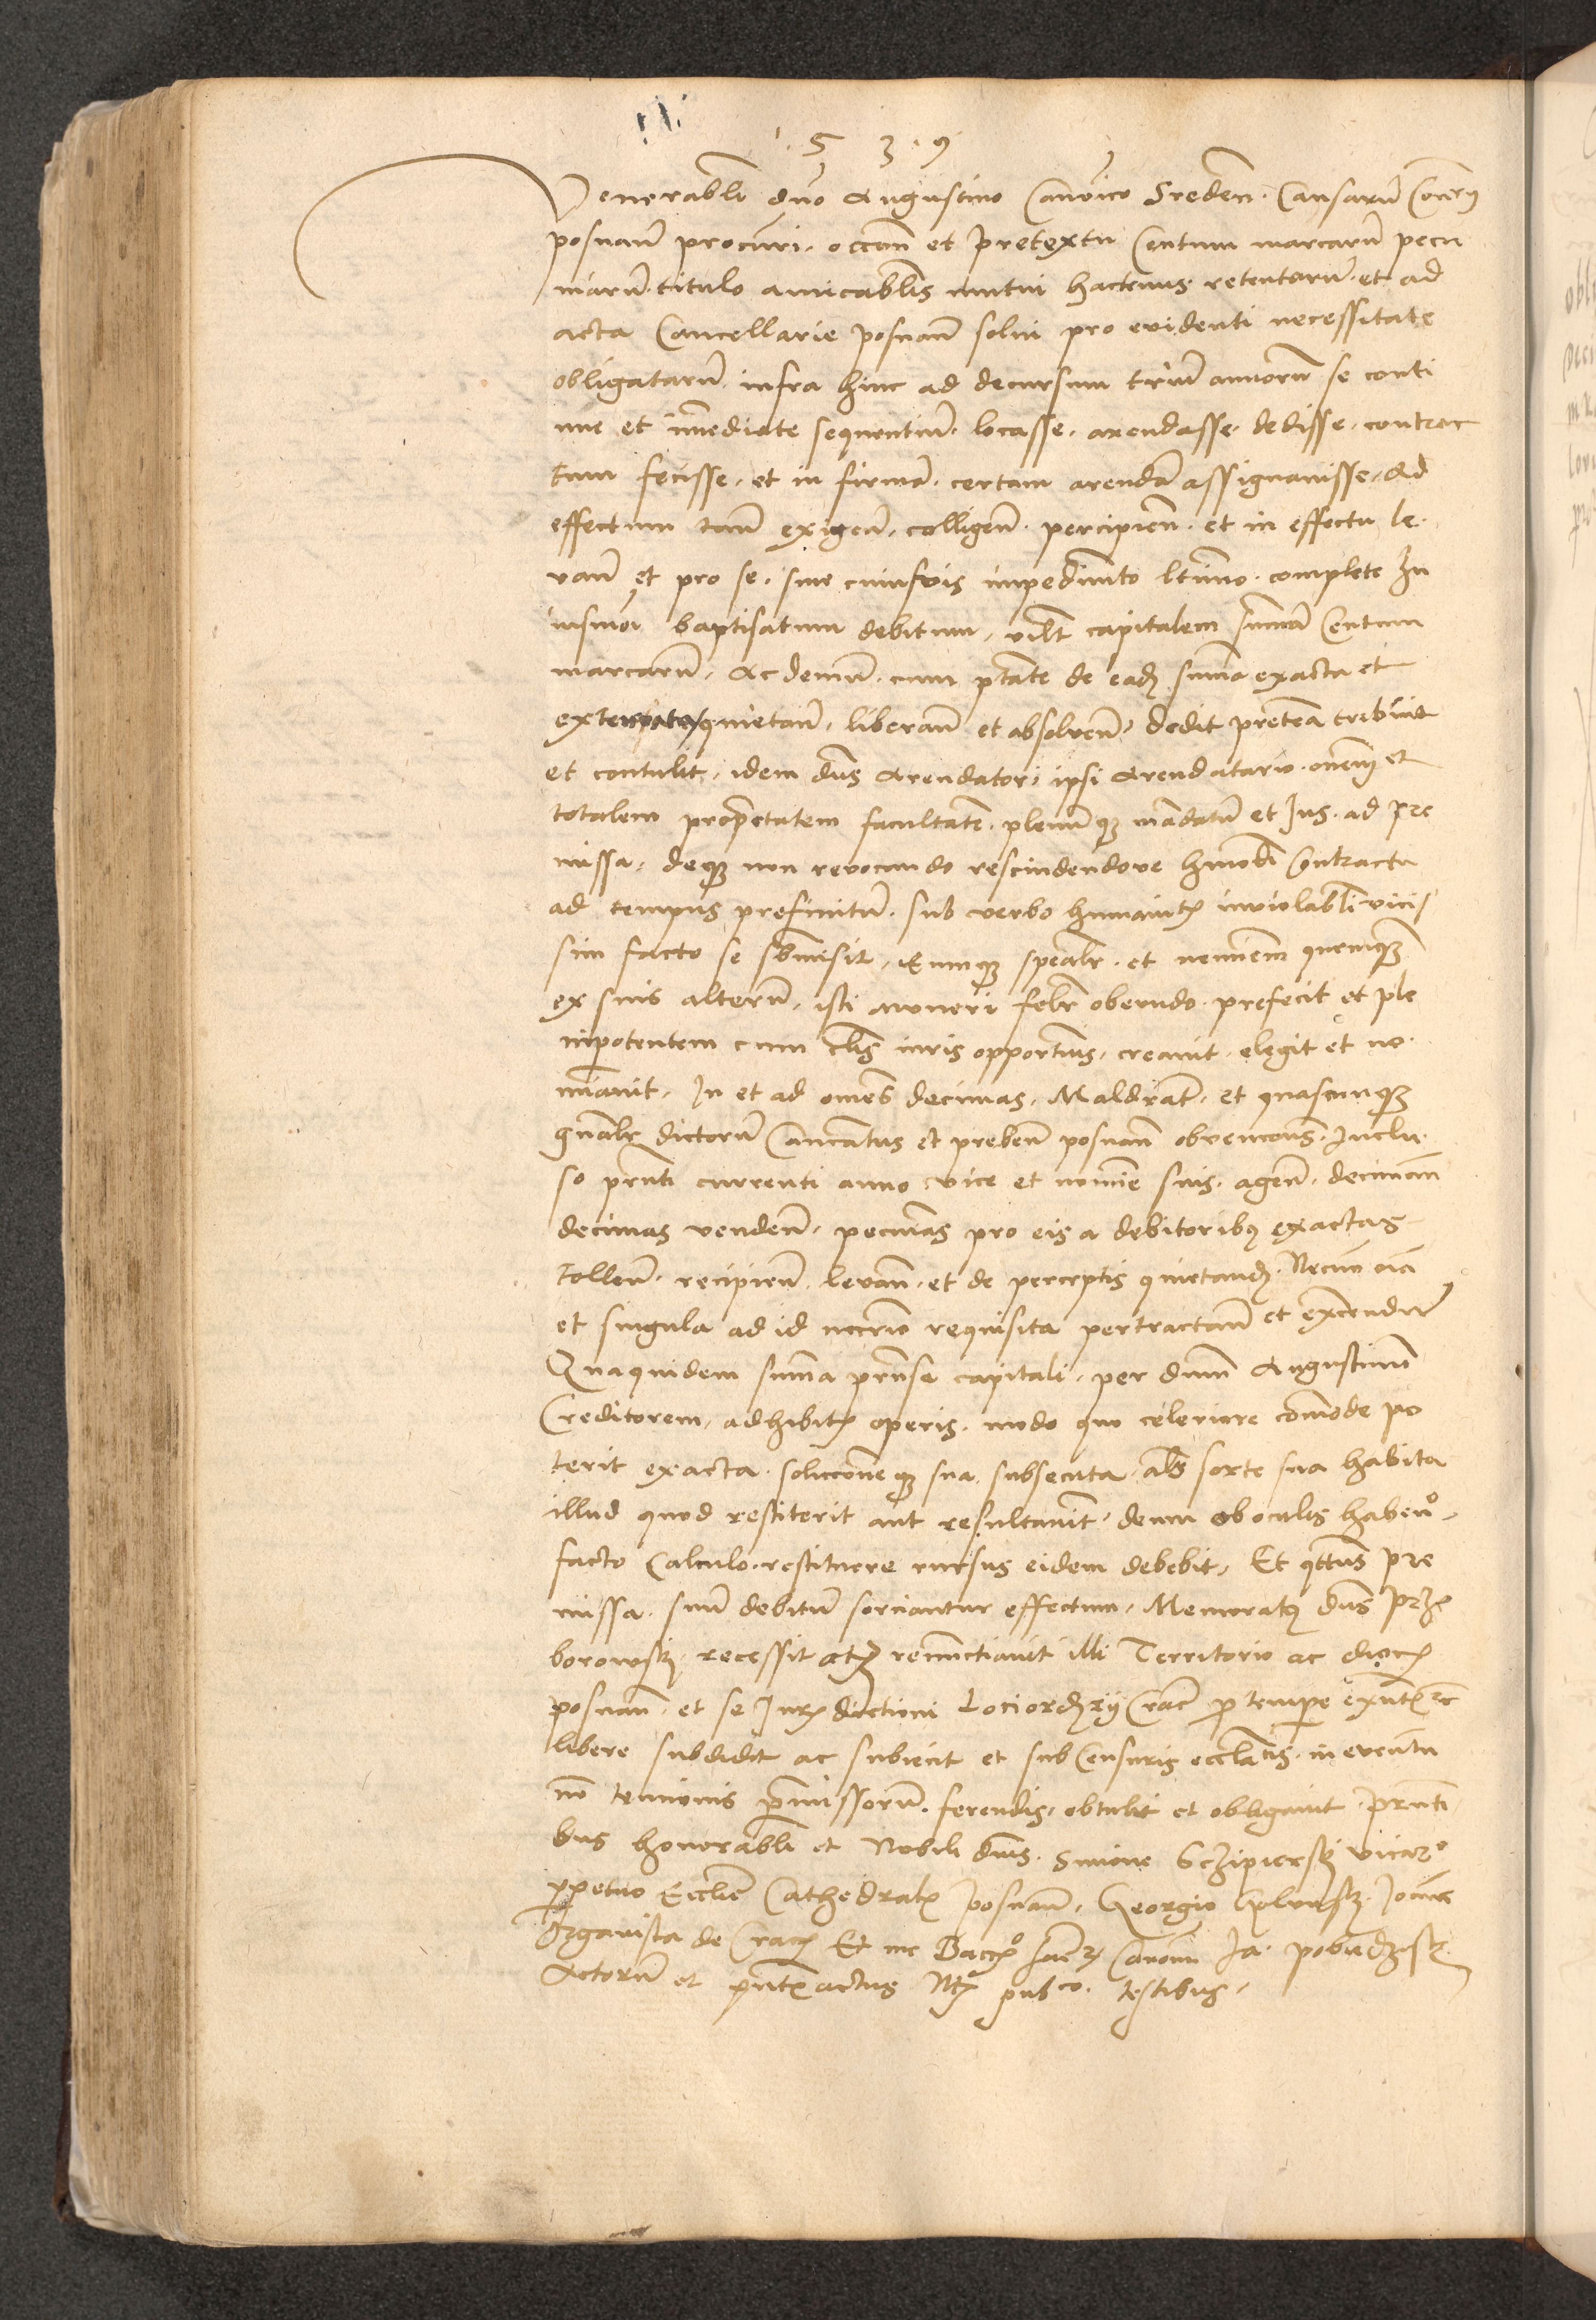 1 5 3 9
Venerabli dno Augustino Canoico Sreden. Causarũ Consry
posnan̄ procuri. occoñ et pretextu Centum marcarũ pecu
niarũ. titulo amicablis mutui hactenus retentarũ. et ad
acta Cancellarie posnan̄ solui pro euidenti necessitate
obligatarũ infra hinc ad decursum triũ annorũ se conti
nue et īmediate sequentiũ. locasse. arendasse. dedisse. contrac
tum fecisse, et in firmā. certam arendā assignauisse, Ad
effectum tam̄ exigen̄, colligen̄. percipien̄. et in effectu le
uan̄ et pro se. sine cuiusuis impedimto ltimo. complete In
iusmōi baptisatum debitum, vidlt capitalem summā Centum
marcarũ, Ac demũ. cum ptate de eadē summa exacta et
quietan̄, liberan̄ et absoluen̄, Dedit pretea tribuit
et contulit, idem dns Arendator, ipsi Arendatario. oñem et
totalem proprietatem facultatē. plenũq3 mādatũ et Jus. ad pre
missa, deq3 non reuocando rescindendoue hmodi Contractu
ad tempus prefinitũ. sub verbo humanit inuiolabli vicis
sim facto se sbmisit, Eumq3 spealr. et neminem quemq3
ex suis alterũ, isti muneri felr obeundo. prefecit et ple
nipotentem cum clis iuris opportnis, creauit. elegit et no
minauit, In et ad omēs decimas, Maldrat, et quascunq3
gnalr dictorũ Canonatus et preben̄ posnan̄ obuencōns. Inclu
so prnti currenti anno vice et nomine suis. agen̄, decimam
decimas venden̄, pecunias pro eis a debitoribq exactas
tollen̄. recipien̄ leuan̄. et de perceptis quietandę. Necnon oīa
et singula ad id necrio requisita pertractan̄ et excendum
Quaquidem summa prense capitali, per dnum Augustinũ
Creditorem, adhibitę operis. modo quo celeriore cōmode po
terit exacta. soluccōneq3 sua subsecuta, als sorte sua habita
illud quod restiterit aut resultauit, deum ob oculis haben°,
facto Calculo, restituere rursus eidem debebit, Et qttus pre
missa. suũ debitũ sorciantur effectum, Memoratq dns Prze
borowsky, recessit atq3 renunctiauit illi Territorio ac dioce
posnan̄. et se Jurę dictioni Lociordrij Crac p tempore exnte
libere subdidit ac subiecit et sub Censuris ecclaticis, in euentu
nō tencionis pmissorũ. ferendis, obtulit et obligauit, prnti
bus honorabli et Nobili dnis. Simone Sczipiersky vicar°
ppetuo Ecclie Cathedralę posnan̄, Georgio Joanne
Organista de Crac Et me Ja. pobiedzisk
Actorũ et pntę actus Not pubco. testibus,